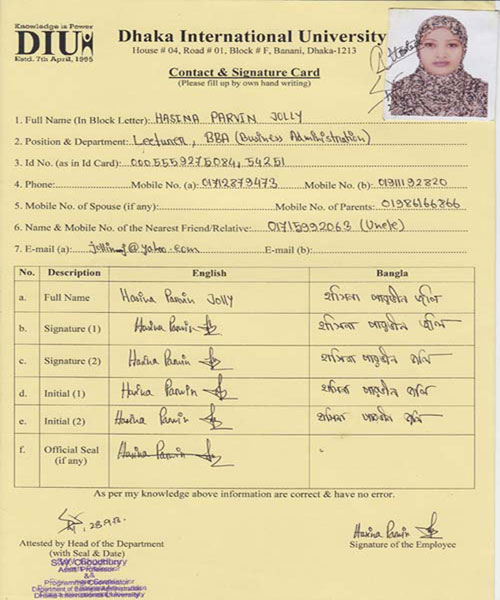 Knowledge is Power
DIU
Estd. 7th April, 1995
Dhaka International University
House # 04, Road # 01, Block # F, Banani, Dhaka-1213
Contact & Signature Card
(Please fill up by own hand writing)
Attested
1. Full Name (In Block Letter): HASINA PARVIN JOLLY
2. Position & Department: Lecturer, BBA (Business Administration)
3. Id No. (as in Id Card): 0005559275084, 54251
4. Phone: Mobile No. (a): 01712879473 Mobile No. (b): 01911192820
5. Mobile No of Spouse (if any): Mobile No. of Parents: 01986166866
6. Name & Mobile No. of the Nearest Friend/Relative: 01715992063 (Uncle)
7. E-mail (a): @yahoo.com E-mail (b):
No. Description English Bangla
a. Full Name Hasina Parvin JOLLY হাসিনা পারভীন জলি
b. Signature (1) Hasina Parvin হাসিনা পারভীন জলি
c. Signature (2) Hasina Parvin হাসিনা পারভীন জলি
d. Initial (1) Hasina Parvin হাসিনা পারভীন জলি
e. Initial (2) Hasina Parvin হাসিনা পারভীন জলি
f. Official Seal (if any) Hasina Parvin
As per my knowledge above information are correct & have no error.
Hasina Parvin
Attested by Head of the Department
(with Seal & Date)
Signature of the Employee
S.W. Choudhury
Asstt. Professor
&
Programme Coordinator
Department of Business Administration
Dhaka International University